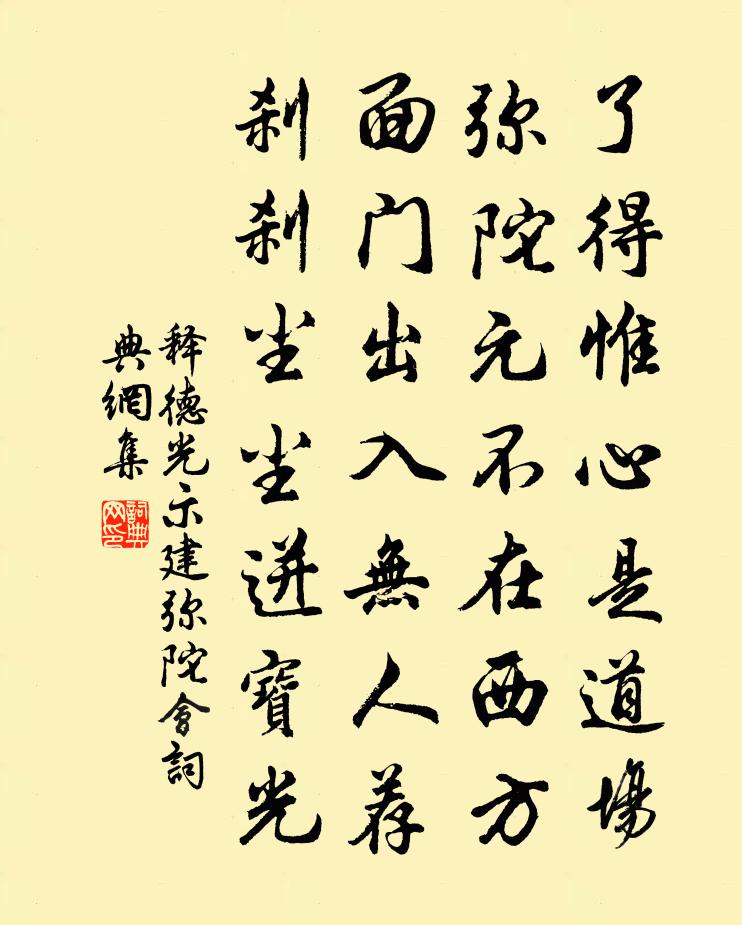 了得惟心是道場
弥陀元不在西方
面门出入無人荐
刹刹尘尘迸寶光
释德光示建弥陀會詞
典網集
詞典
网印